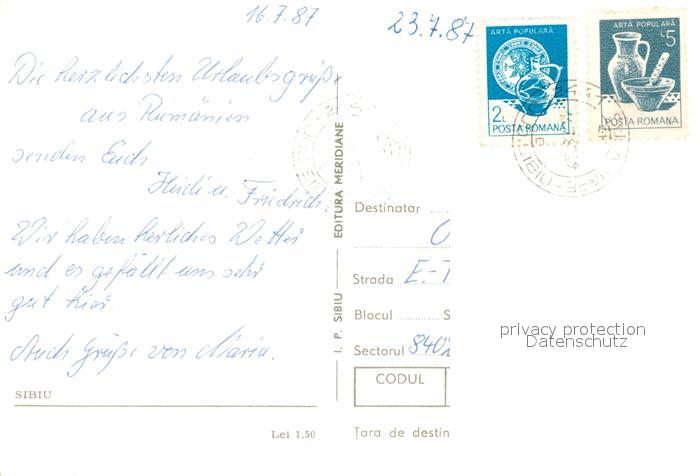 16.7.87
23.7.87
ARTĂ POPULARĂ
2L
POSTA ROMANA
ARTĂ POPULARĂ
L5
POSTA ROMANA
Die herzlichsten Urlaubsgrüße
aus Rumänien
senden Euch
Heidi u. Friedrich.
Wir haben herliches Wetter
und es gefällt uns sehr
gut hier.
Auch Grüße von Maria.
SIBIU
Lei 1,50
I. P. SIBIU EDITURA MERIDIANE
Destinatar
Strada E.-T
Blocul S
Sectorul 8402
CODUL
Țara de destin
privacy protection
Datenschutz